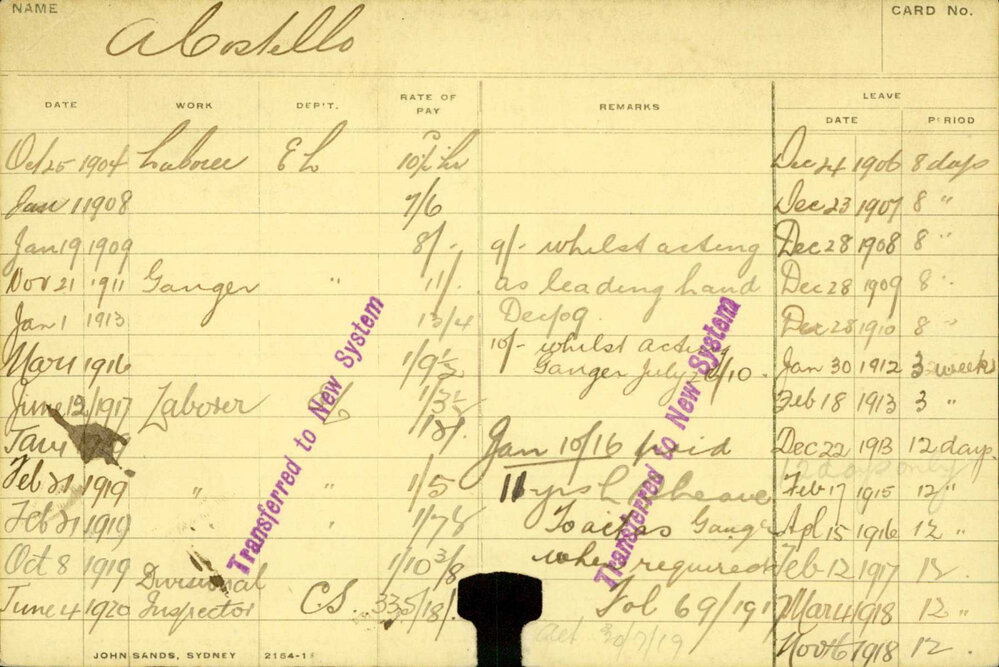 NAME A Costello CARD No.
DATE WORK DEP'T. RATE OF PAY REMARKS LEAVE
DATE PERIOD
Oct 25 1904 Laborer E L Dec 24 1906 8 days
Jan 1 1908 7/6 Dec 23 1907 8 "
Jan 19 1909 8/- 9/- whilst acting Dec 28 1908 8 "
Nov 21 1911 Ganger " 11/- as leading hand Dec 28 1909 8 "
Jan 1 1913 13/4 Dec/09. Dec 28 1910 8 "
Mar 1 1916 1/9½ 10/- whilst acting Jan 30 1912 3 weeks
Ganger July 10.
June 12/1917 Laborer Feb 18 1913 3 "
Jan 1 Jan 10/16 paid Dec 22 1913 12 days
12 days only
Feb 21 1919 " " 1/5 11 yrs L Feb 17 1915 12 "
Feb 21 1919 " To act as Ganger Apl 15 1916 12 "
Oct 8 1919 1/10 3/8 when required Feb 12 1917 12 "
June 4 1920 Divisional Inspector C.S. 335/18/- Fol 69/191 Mar 4 1918 12 "
30/7/19 Nov 16 1918 12 "
Transferred to New System
Transferred to New System
JOHN SANDS, SYDNEY 2154-1